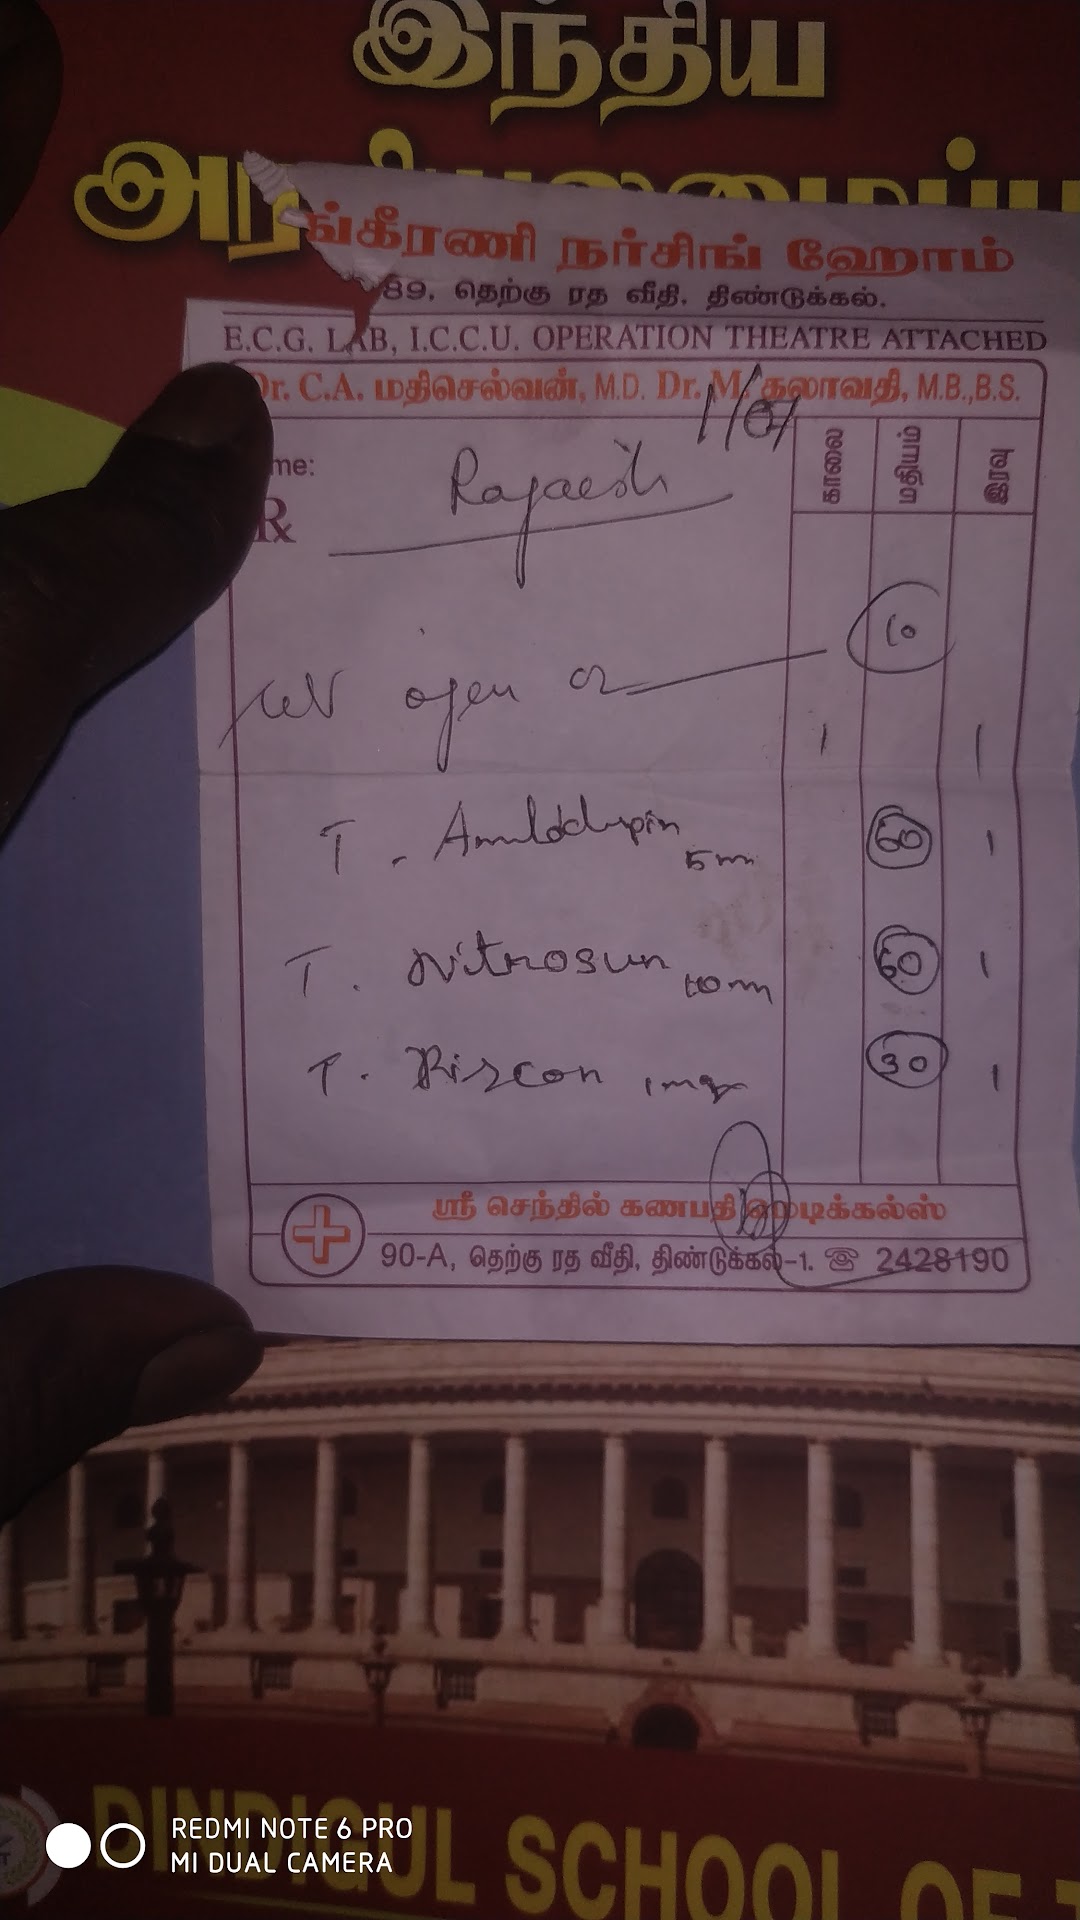 இந்திய
ங்கீரணி நர்சிங் ஹோம்
89, தெற்கு ரத வீதி, திண்டுக்கல்.
E.C.G. LAB, I.C.C.U. OPERATION THEATRE ATTACHED
Dr. C.A. மதிசெல்வன், M.D. Dr. M. கலாவதி, M.B.,B.S.
me:
காலை மதியம் இரவு
℞
10
1 1
T. 5m 60 1
T. Nitrosun 10m 60 1
T. Rizcon 1mg 30 1
ஸ்ரீ செந்தில் கணபதி மெடிக்கல்ஸ்
90-A, தெற்கு ரத வீதி, திண்டுக்கல்-1. ☎ 2428190
DINDIGUL SCHOOL OF
REDMI NOTE 6 PRO
MI DUAL CAMERA